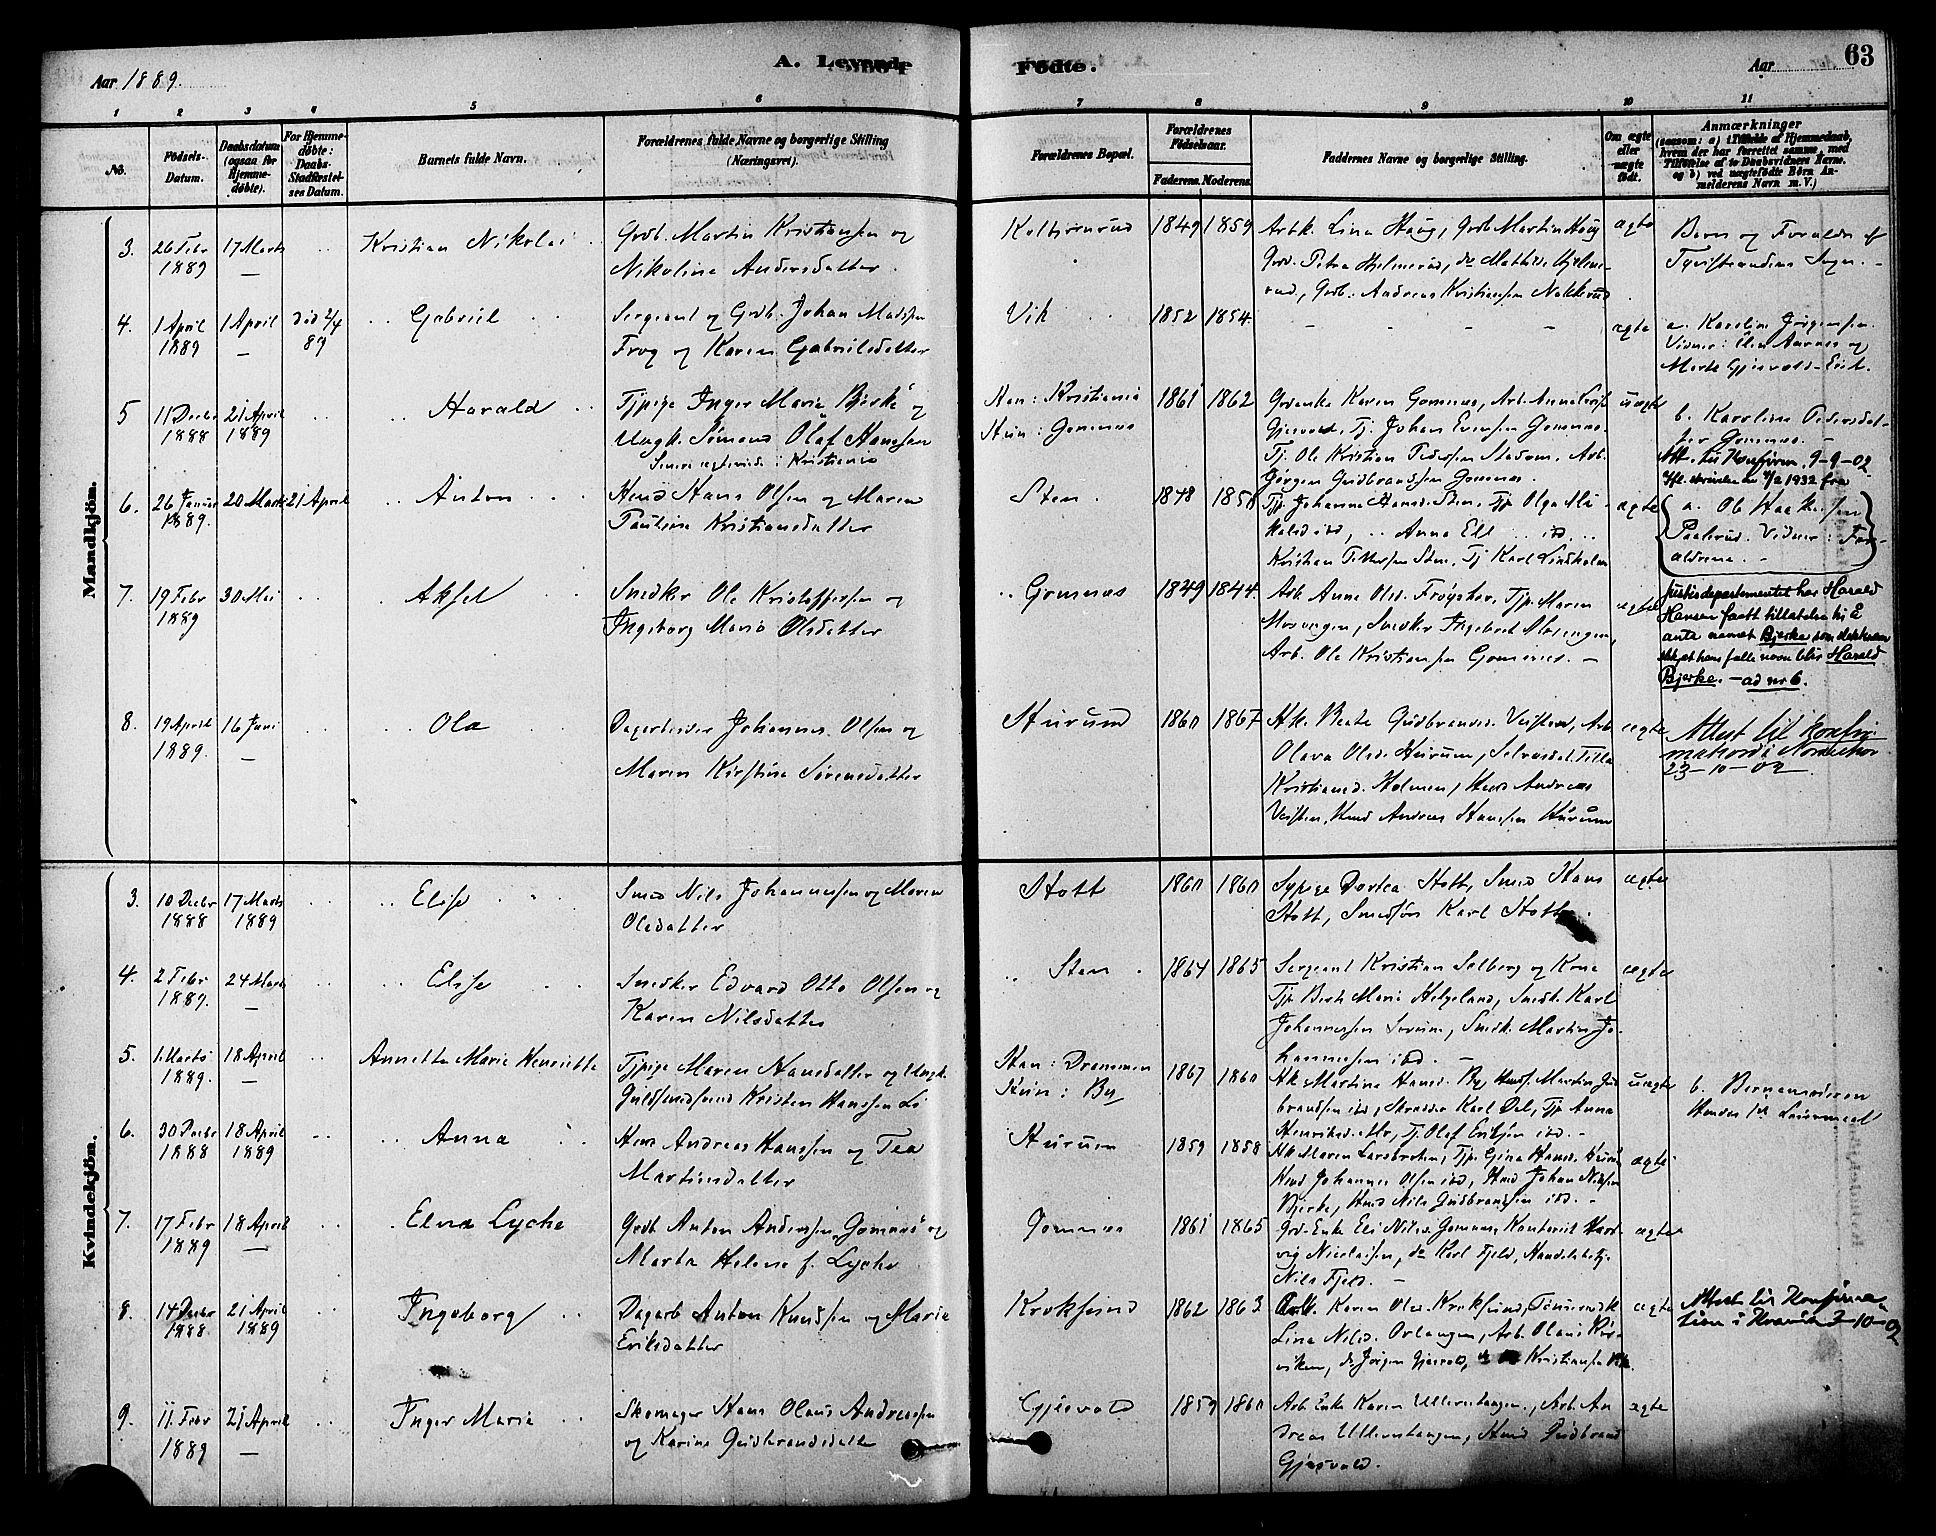 Aar 1889.
A. Levende
Fødte.
Aar
63
1 2 3 4 5 6 7 8 9 10 11
No.
Fødsels-
Datum.
Daabsdatum
(ogsaa for
Hjemme-
døbte).
For Hjemme-
døbte:
Daabs-
Stadfæstel-
ses Datum.
Barnets fulde Navn.
Forældrenes fulde Navne og borgerlige Stilling
(Næringsvei).
Forældrenes Bopæl.
Forældrenes
Fødselsaar.
Faderens. Moderens.
Faddernes Navne og borgerlige Stilling.
Om ægte
eller
uægte
født.
Anmærkninger
(saasom: a) i Tilfælde af Hjemmedaab,
hvem der har forrettet samme, med
Tilføielse af to Daabsvidners Navne,
og b) ved uægtefødte Børn An-
melderens Navn m. V.)
Mandkjön.
3. 26 Febr 1889 17 Marts — Kristian Nikolai
Grdb. Martin Kristiansen og
Nikoline Andersdatter.
1849 1859
Arbk. Lina Haug, Grdb Martin Haug
Grd. Petra Hjelmerud, do Mathis Hjelme-
rud, Grdb. Andreas Kristiansen Nakkerud
ægte
Barn og Forældre af
Tyristrandens Sogn. —
4. 1 April 1889 1 April — død 2/4 89 Gabriel
Sergeant og Grdb. Johan Madssen
Frog og Karen Gabrielsdatter
Vik 1852 1854.
ægte
a. Karoline Jørgensen.
Vidner: Elen Aarnes og
Marte Gjesvold-Eiet.
5 11 Decbr 1888 21 April 1889 Harald
Tjpige Inger Marie "Bjerke" og
Ungk. Sømand Olaf Hanssen
Han: Kristiania
Hun: Gomnæs
1861 1862
Grdenke Karen Gomnæs, Arb. Anne
Gjesvold, Tj. Johan Evensen Gomnæs.
Tj. Ole Kristian Pedersen Stadum, Arb.
Jørgen Gudbrandsen Gomnæs.
uægte
b. Karoline Pedersdat-
ter Gomnæs. —
Att. til Konfirm. 9-9-02
6. 26 Januar 1889. 20 Marts 21 April Anton
Hmd Hans Olsen og Maren
Pauline Kristiansdatter
Sten 1848 1850
Tjp. Johanne Hansd. Sten, Tjp Olga
Anna
Kristian Pettersen Sten, Tj Karl Lindholm
ægte
a. Ole Haakensen
Paalerud. Vidner: For-
ældrene. —
7. 19 Febr 1889 30 Mai Aksel
Snedker Ole Kristoffersen og
Ingeborg Marie Olsdatter
Gomnæs 1849 1844.
Arb. Anne Olsd. Frøyshov, Tjp. Maren
Mosengen, Snedker Ingebret Mosengen,
Arb. Ole Kristiansen Gomnæs. —
ægte
Justisdepartementet har Harald
Hansen faatt tillatelse til å
anta navnet Bjerke som slektsnavn
slik at hans fulle navn blir Harald
Bjerke. — ad nr 6.
8. 19 April 1889. 16 Juni — Ola
Dagarbeider Johannes Olsen og
Maren Kirstine Sørensdatter
Hurum 1860 1867.
Hk. Beate Gudbrandsd. Veisten, Arb
Olava Olsd. Hurum,
Kristiansd. Holmen, Hmd Andreas
Veisten, Hmd Andreas Hanssen Hurum
ægte
Attest til konfir-
mation i Norderhov
23-10-02
Kvindekjön.
3. 10 Decbr 1888 17 Marts 1889 Elise
Smed Nils Johannessen og Maren
Olsdatter
Stott 1860 1860
Sypige Dortea Stott, Smed Hans
Stott, Smedsøn Karl Stott.
ægte
4. 2 Febr 1889. 24 Marts Elise
Snedker Edvard Otto Olsen og
Karen Nilsdatter
Sten 1864 1865
Sergeant Kristian Solberg og Kone
Tjp. Berte Marie Helgeland, Snedk. Karl
Johannessen Lerum, Snedk. Martin Jo-
hannessen ibd. —
ægte
5. 1 Marts 1889. 18 April — Annette Marie Henriette
Tjpige Maren Hansdatter og Ungk.
Guldsmedsvend Kristen Hanssen Li
Han: Drammen
Hun: By
1867 1860
Hk. Martina Hansd. By, Hmd. Martin Gud-
brandsen ibd, Skrædder Karl Dal, Tjp Anna
Henriksdatter, Tj. Olaf Eriksen ibd. —
uægte
b. Barnemoderen
Hendes 1ste Leiermaal
6. 30 Decbr 1888 18 April 1889 Anna
Hmd Andreas Hanssen og Tea
Martinsdatter
Hurum 1859 1858
Hk Maren Larsbraaten, Tjp. Gina Hansd. Hurum,
Hmd Johannes Olsen ibd, Hmd Johan Nilsen
Bjerke, Hmd Nils Gudbrandsen ibd. —
ægte
7. 17 Febr 1889 18 April — Elna Lyche
Grdb Anton Anderssen "Gomnæs" og
Marta Helene f. Lyche
Gomnæs 1861 1865
Grd-Enke Eli Nilsd. Gomnæs, Kontorist Hart-
vig Nicolaisen, do Karl Fjeld, Handelsbetj.
Nils Fjeld. —
ægte
8. 14 Decbr 1888 21 April 1889 Ingeborg
Dagarb Anton Knudssen og Marie
Eriksdatter
Kroksund 1862 1863.
Arb. Karen Olsd. Kroksund,
Lina Nilsd. Orlangen, Arb. Olaus
viken, do Jørgen Gjesvold, Kristiansen
ægte
Attest til Konfirma-
tion i 3-10-02
9. 11. Febr 1889 21 April — Inger Marie
Skomager Hans Olaus Andreassen
og Karine Gudbrandsdatter
Gjesvold 1859 1860
Arb Enke Karen Ullernhaugen, Arb. An-
dreas Ullernhaugen, Hmd Gudbrand
Gjesvold.
ægte